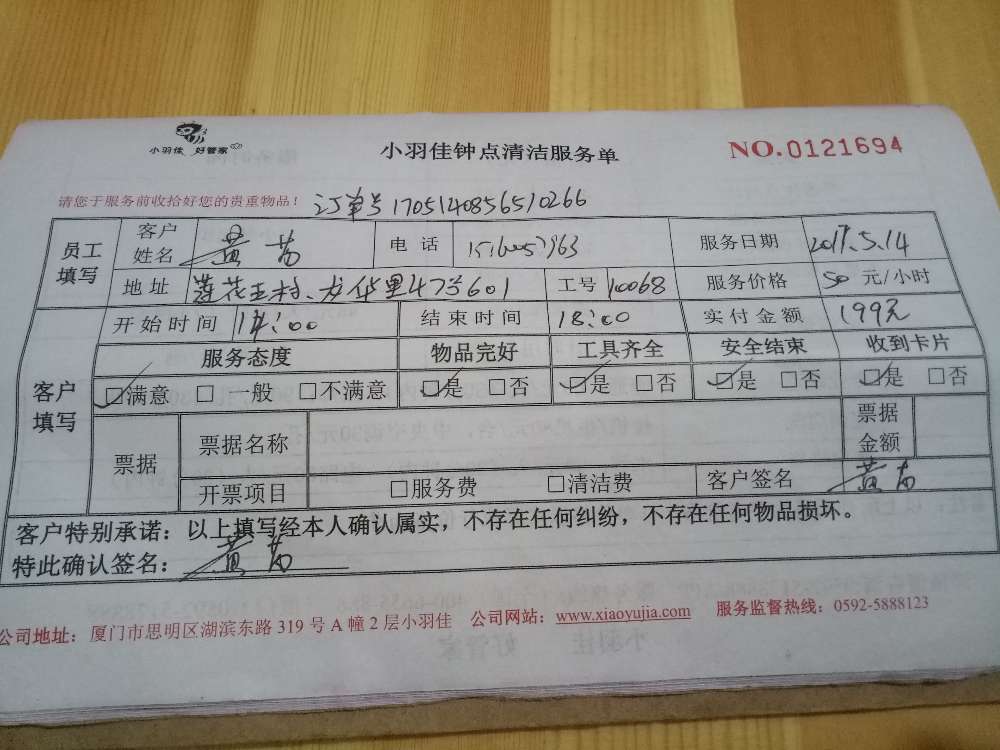 小羽佳 好管家
小羽佳钟点清洁服务单
NO.0121694
请您于服务前收拾好您的贵重物品!
订单号 1705140856510266
员工填写 客户姓名 电话 服务日期 2017.5.14
地址 莲花五村、龙华里47号601 工号 10068 服务价格 50 元/小时
客户填写 开始时间 14:00 结束时间 18:00 实付金额 199元
服务态度 物品完好 工具齐全 安全结束 收到卡片
☑满意 □一般 □不满意 ☑是 □否 ☑是 □否 ☑是 □否 ☑是 □否
票据 票据名称 票据金额
开票项目 □服务费 □清洁费 客户签名
客户特别承诺:以上填写经本人确认属实,不存在任何纠纷,不存在任何物品损坏。
特此确认签名:
公司地址:厦门市思明区湖滨东路 319 号 A 幢 2 层小羽佳 公司网站:www.xiaoyujia.com 服务监督热线:0592-5888123